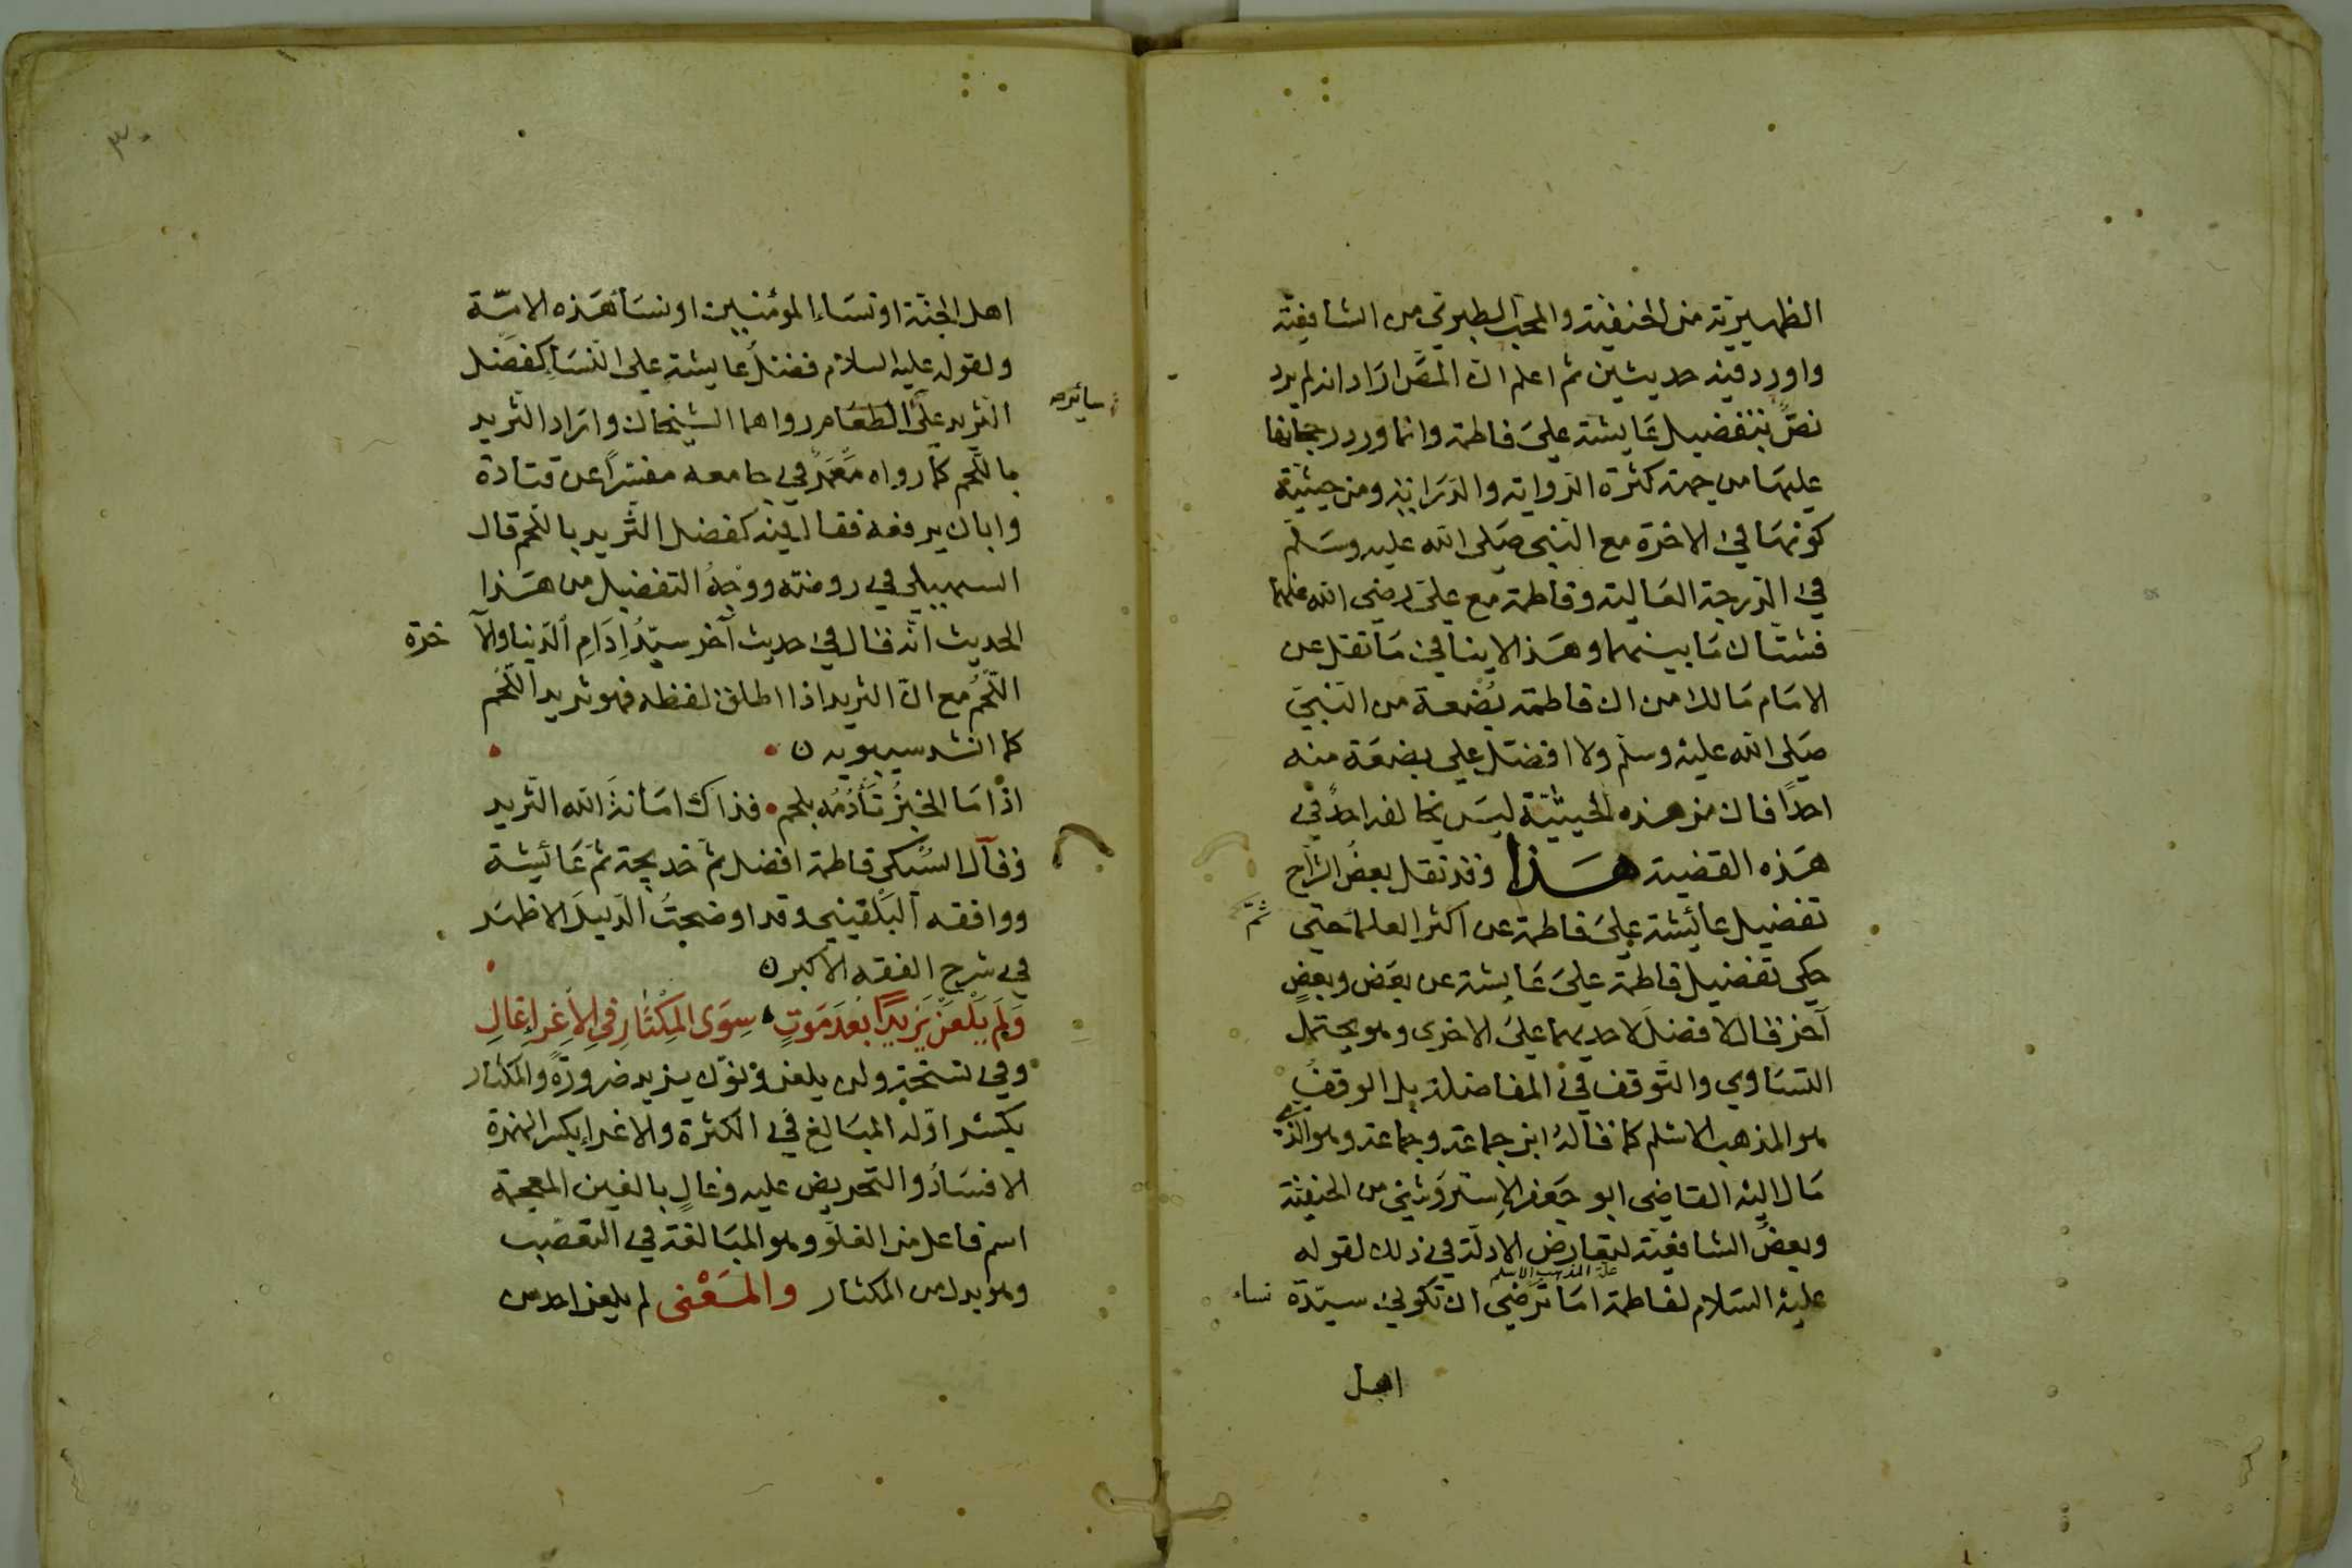 الظهيرية من الحنفية والمحب الطبري من الشافعية
واورد فيه حديثين ثم اعلم ان المص اراد انه لم يرد
نصّ بتفضيل عايشة على فاطمة وانما ورد رجحانها
عليها من جهة كثرة الرواية والدراية ومن حيثية
كونها في الاخرة مع النبي صلى الله عليه وسلم
في الدرجة العالية وفاطمة مع علي رضي الله عنهما
فشتان ما بينهما وهذا لا ينافي ما نقل عن
الامام مالك من ان فاطمة بضعة من النبي
صلى الله عليه وسلم ولا افضل على بضعة منه
احدا فان من هذه الحيثية ليس يخالفه احد في
هذه القضية هذا وقد نقل بعض الشراح
تفضيل عائشة على فاطمة عن اكثر العلما حتى ثم
حكى تفضيل فاطمة على عايشة عن بعض وبعض
آخر قال لا فضل لاحديهما على الاخرى وهو يحتمل
التساوي والتوقف في المفاضلة بل الوقف
هو المذهب الاسلم كما قاله ابن جماعة وجماعة وهو الذي
مال اليه القاضي ابو جعفر الاستروشني من الحنفية
وبعض الشافعية لتعارض الادلة في ذلك لقوله
علة المذهب الاسلم
عليه السلام لفاطمة اما ترضي ان تكوني سيدة نساء
اهل
اهل الجنة او نساء المؤمنين او نسأ هذه الامّة
ولقوله عليه السلام فضل عايشة على النسأ كفضل
الثريد على الطعام رواهما الشيخان واراد الثريد
سائر صح
باللحم كما رواه معمر في جامعه مفسرا عن قتادة
وابان يرفعه فقال فيه كفضل الثريد باللحم قال
السهيلي في روضته ووجه التفضيل من هذا
الحديث انه قال في حديث آخر سيّد اِدَامِ الدنيا والآخرة
اللحم مع انّ الثريد اذا اطلق لفظه فهو ثريد اللحم
كما انشد سيبويه
اذا ما الخبز تأدمه بلحم فذاك امانة الله الثريد
وقال السبكي فاطمة افضل ثم خديجة ثم عائيشة
ووافقه البلقيني وقد اوضحت الدليل الاظهر
في شرح الفقه الاكبر
وَلَم يَلْعَنْ يَزيدًا بَعْدَ مَوتٍ سِوَى المِكْثَارِ في الاِغراءِ غَالِ
وفي نسخة ولن يلعن ونوّن يزيد ضرورة والمكثار
بكسر اوله المبالغ في الكثرة والاغراء بكسر الهمزة
الافساد والتحريض عليه وغالٍ بالغين المعجمة
اسم فاعل من الغلو وهو المبالغة في التعصب
وهو بدل من المكثار والمَعْنى لم يلعن احد من